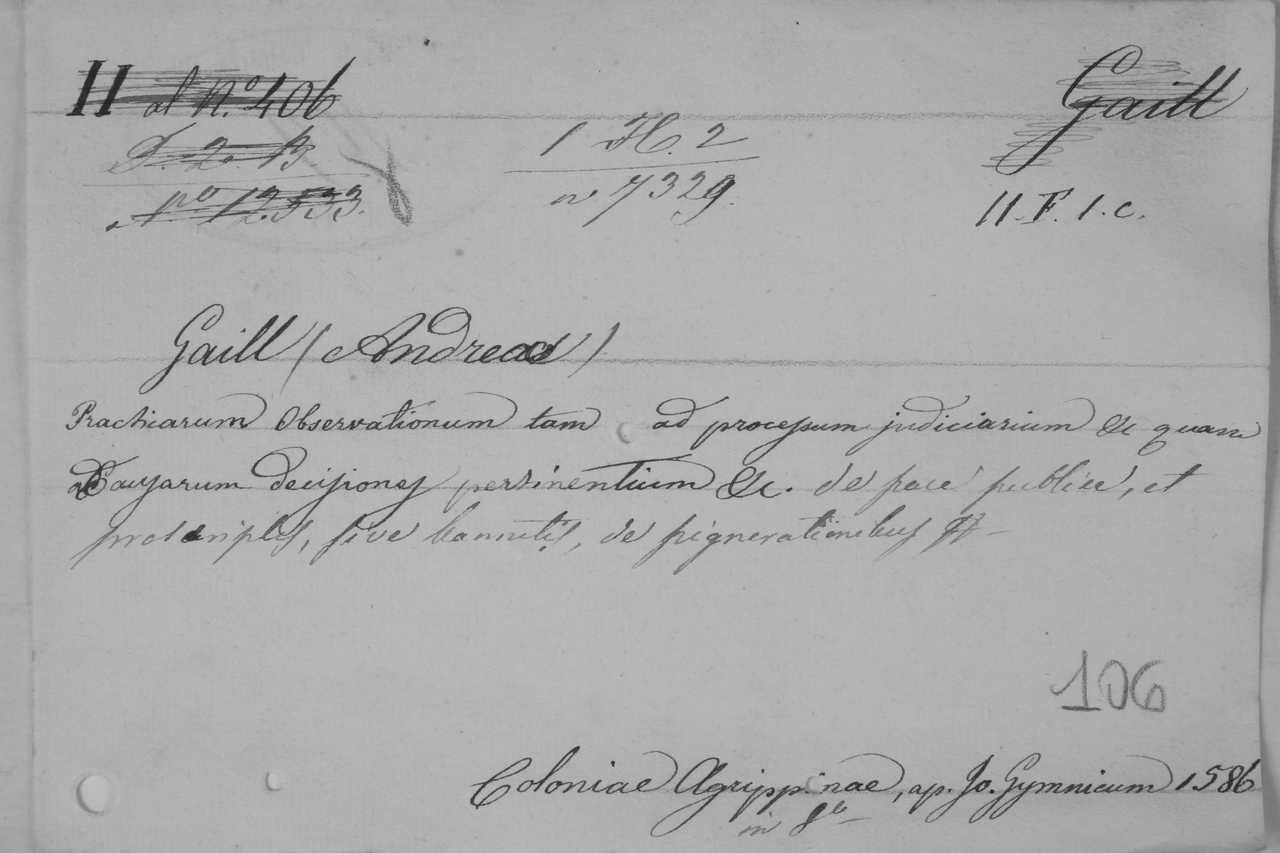 II al N.º 406
Gaill
D. 2. B
Nº 12533.
1 H. 2
nº 7329.
11. F. 1. c.
Gaill (Andreas)
Practicarum Observationum tam ad processum judiciarium &c quam
Causarum decisiones pertinentium &c. de pace publica, et
proscriptis, sive bannitis, de pignerationibus
106
Coloniae Agrippinae, ap. Jo. Gymnicum 1586
in 8º